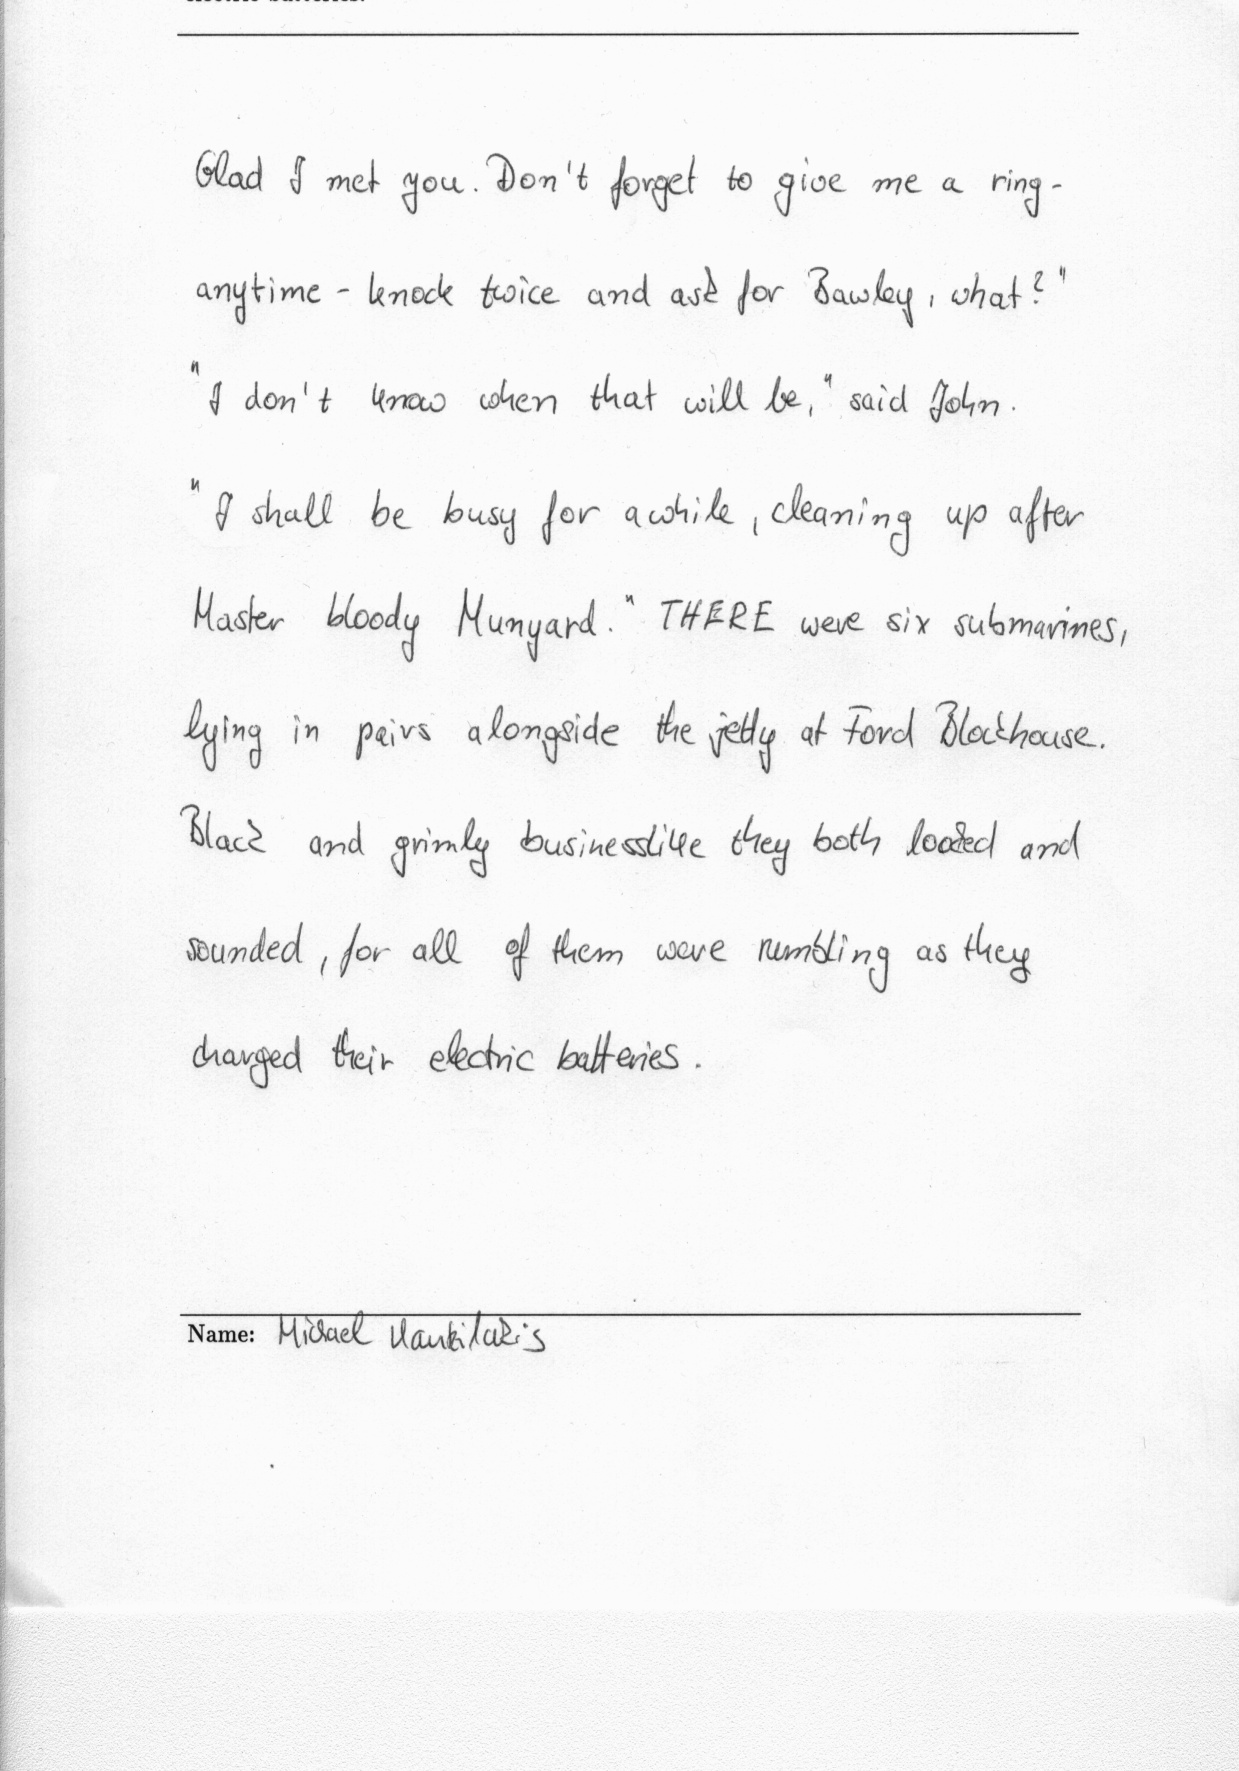 Glad I met you. Don't forget to give me a ring -
anytime - knock twice and ask for Bawley, what?"
"I don't know when that will be," said John.
"I shall be busy for awhile, cleaning up after
Master bloody Munyard." THERE were six submarines,
lying in pairs alongside the jetty at Ford Blockhouse.
Black and grimly businesslike they both looked and
sounded, for all of them were rumbling as they
charged their electric batteries.
Name: Michael